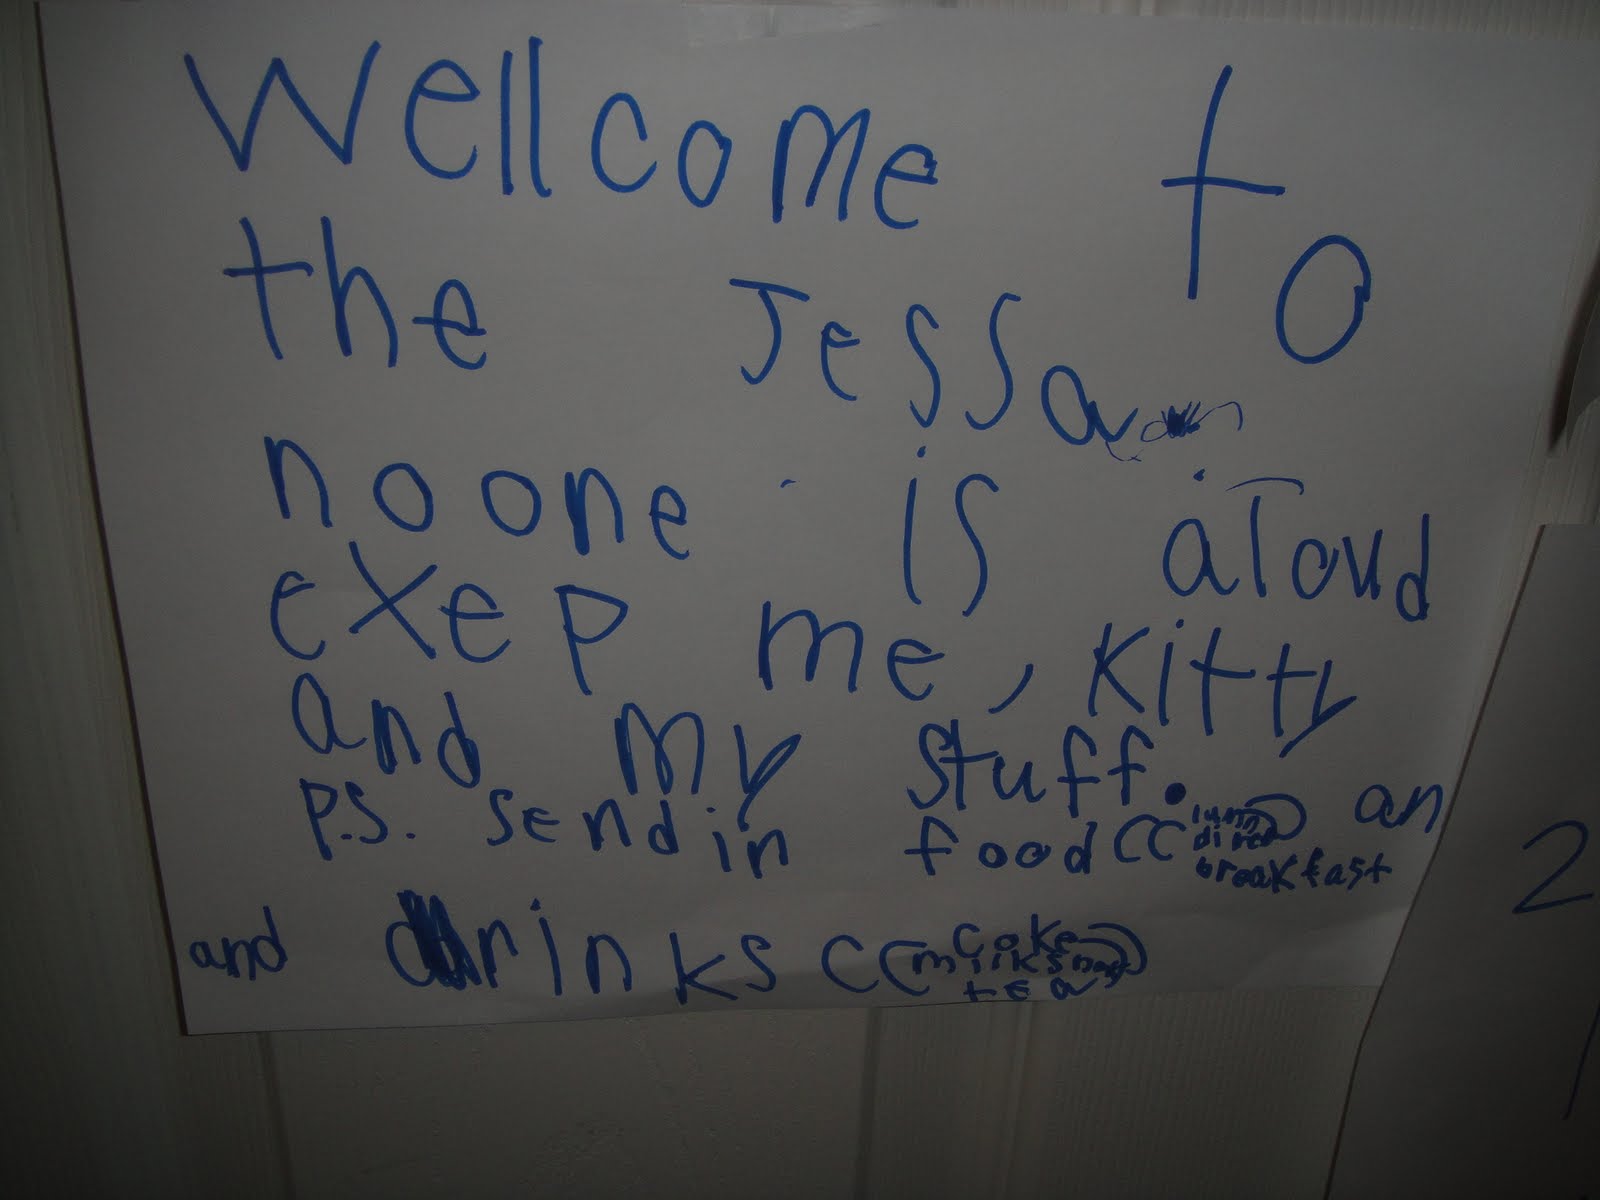 Wellcome to
the Jessa
no one is aloud
exep me, Kitty
and my stuff.
P.S. send in food (( dinr breakfast an
and drinks (( coke tea
2